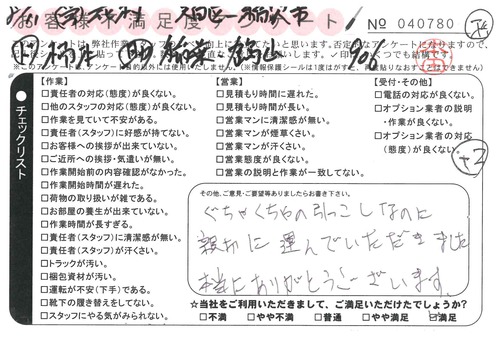 お客様満足度アンケート
No 040780
チェックリスト
【作業】
□責任者の対応(態度)が良くない。
□他のスタッフの対応(態度)が良くない。
□作業を見ていて不安がある。
□責任者(スタッフ)に好感が持てない。
□お客様への挨拶が出来ていない。
□ご近所への挨拶・気遣いが無い。
□作業開始前の内容確認がなかった。
□作業開始時間が遅れた。
□荷物の取り扱いが雑である。
□お部屋の養生が出来ていない。
□作業時間が長すぎる。
□責任者(スタッフ)に清潔感が無い。
□責任者(スタッフ)が汗くさい。
□トラックが汚い。
□梱包資材が汚い。
□運転が不安(下手)である。
□靴下の履き替えをしてない。
□スタッフにやる気がみられない。
【営業】
□見積もり時間に遅れた。
□見積もり時間が長い。
□営業マンに清潔感が無い。
□営業マンが煙草くさい。
□営業マンが汗くさい。
□営業態度が良くない。
□営業の説明と作業が一致してない。
【受付・その他】
□電話の対応が良くない。
□オプション業者の説明
・作業が良くない。
□オプション業者の対応
(態度)が良くない。
+2
その他、ご意見・ご要望等ありましたらお書き下さい。
ぐちゃぐちゃの引っこしなのに
親切に運んでいただきました
本当にありがとうございます。
☆当社をご利用いただきまして、ご満足いただけたでしょうか?
□不満 □やや不満 □普通 □やや満足 □満足